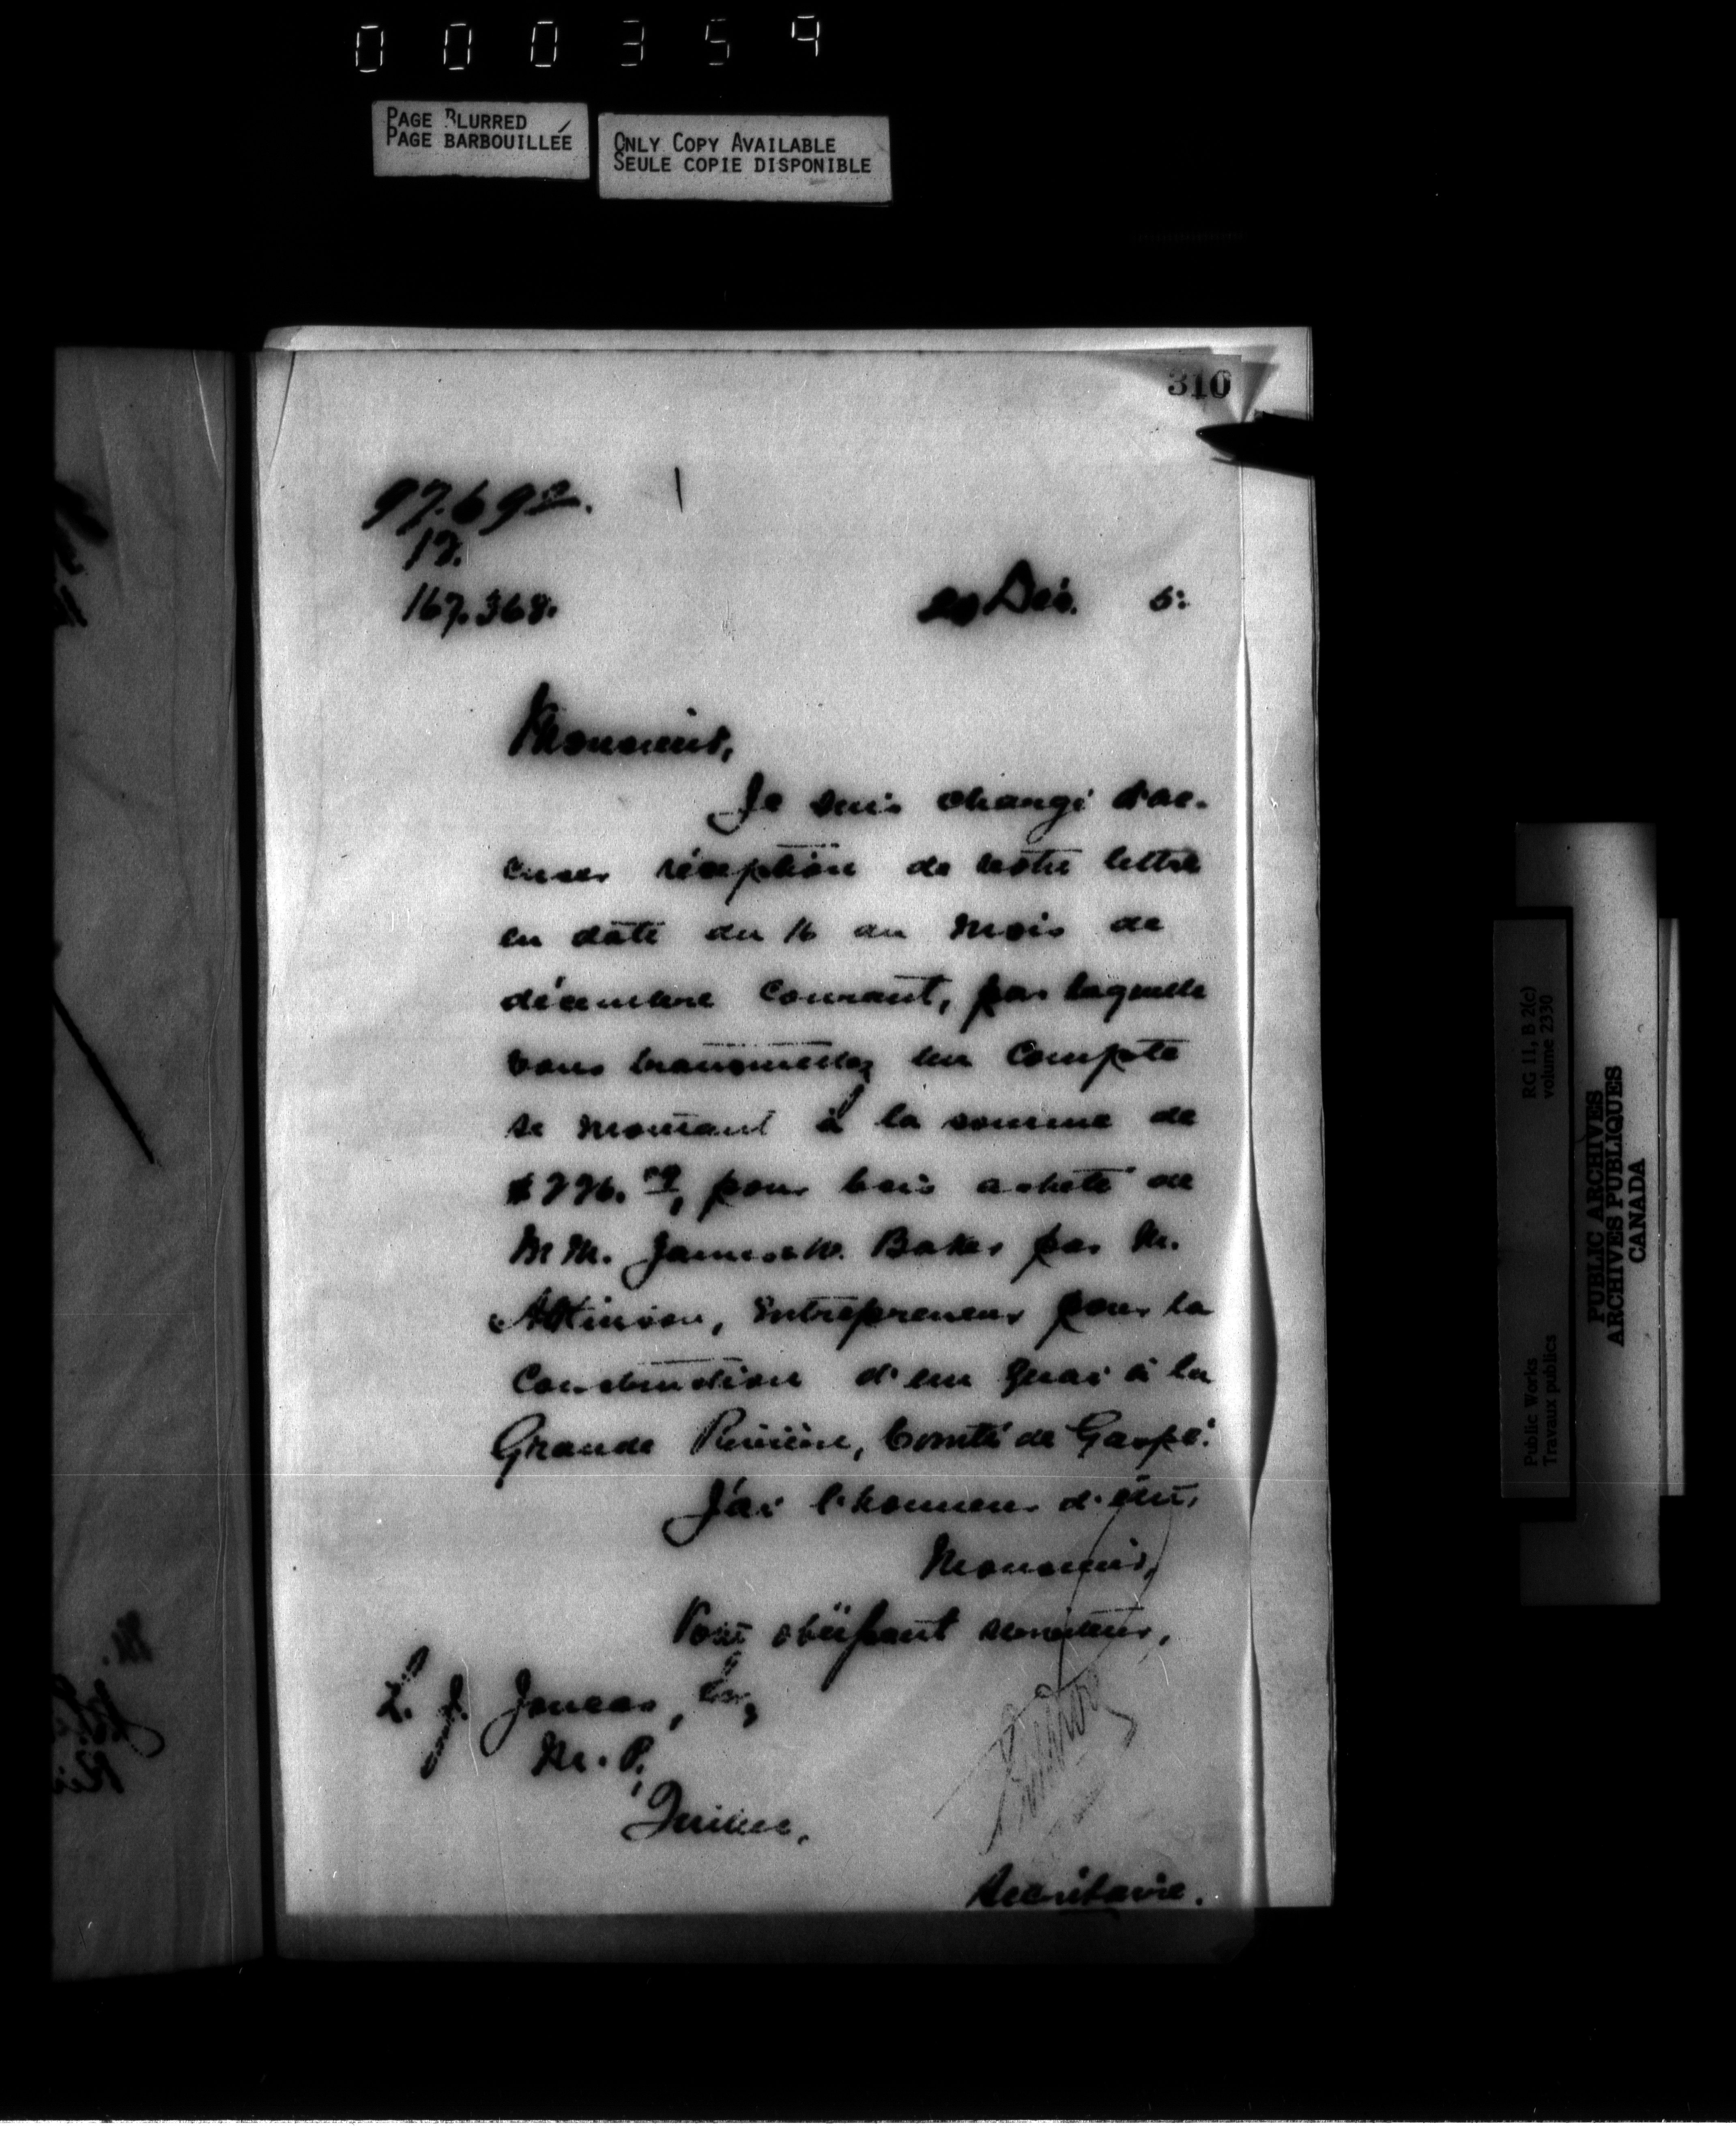 000359
PAGE BLURRED
PAGE BARBOUILLÉE
ONLY COPY AVAILABLE
SEULE COPIE DISPONIBLE
310
97.692.
12.
167.368.
Déc. 5.
Monsieur,
Je suis chargé d'ac-
cuser réception de votre lettre
en date du 16 du mois de
décembre courant, par laquelle
vous transmettez un compte
se montant à la somme de
pour bois acheté de
M M. James & W. Baker par M.
Atkinson, Entrepreneur pour la
construction d'un quai à la
Grande Rivière, Comté de Gaspé.
J'ai l'honneur d'être,
Monsieur,
Votre obéissant serviteur,
L. J. Joncas, Esq,
M. P.,
Québec.
Secrétaire.
RG 11, B 2(c)
volume 2330
Public Works
Travaux publics
PUBLIC ARCHIVES
ARCHIVES PUBLIQUES
CANADA